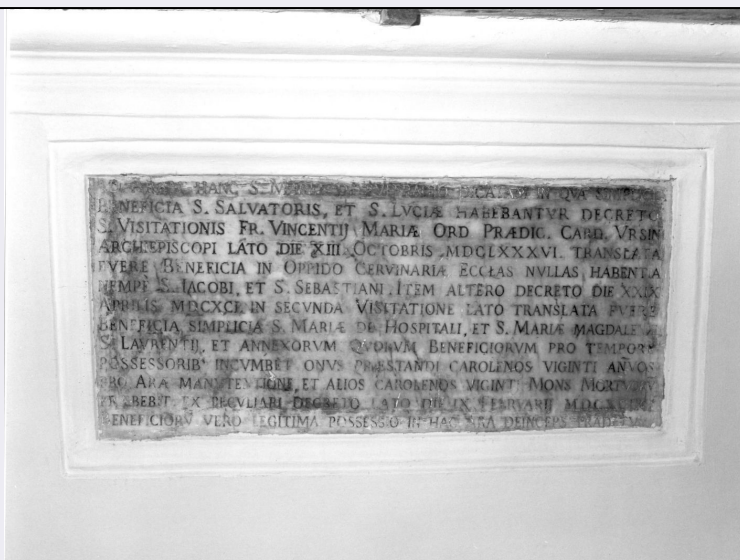 HANC S. IN QVA
BENEFICIA S. SALVATORIS, ET S. LVCIÆ HABEBANTVR DECRETO
S. VISITATIONIS FR. VINCENTIJ MARIÆ ORD PRÆDIC. CARD. VRSIN
ARCHIEPISCOPI LATO DIE XIII OCTOBRIS MDCLXXXVI. TRANSLATA
FVERE BENEFICIA IN OPPIDO CERVINARIÆ ECCLAS NVLLAS HABENTIA
NEMPE S. IACOBI, ET S. SEBASTIANI. ITEM ALTERO DECRETO DIE XXIX
APRILIS MDCXCI. IN SECVNDA VISITATIONE LATO TRANSLATA FVERE
BENEFICIA SIMPLICIA S. MARIÆ DE HOSPITALI, ET S. MARIÆ MAGDALE
S. LAVRENTIJ, ET ANNEXORVM QVORVM BENEFICIORVM PRO TEMPOR
POSSESSORIB' INCVMBET ONVS PRÆSTANDI CAROLENOS VIGINTI ANVOS
PRO ARÆ MANVTENTIONE, ET ALIOS CAROLENOS VIGINTI MONS
EX PECVLIARI DECRETO LATO DIE IX FEBRVARIJ
BENEFICIORV VERO LEGITIMA POSSESSIO IN HAC ARA DEINCEPS